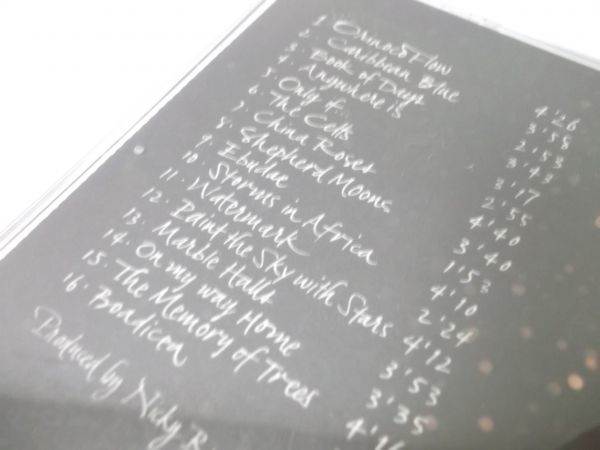 1 Orinoco Flow 4'26
2. Caribbean Blue 3'58
3 Book of Days 2'53
4 Anywhere is 3'43
5 Only if 3'17
6 The Celts 2'55
7 China Roses 4'40
8 Shepherd Moons 3'40
9 Ebudae 1'53
10 Storms in Africa 4'10
11 Watermark 2'24
12. Paint the Sky with Stars 4'12
13 Marble Halls 3'53
14. On my way Home 3'35
15 The Memory of Trees
16. Boadicea
Produced by Nicky